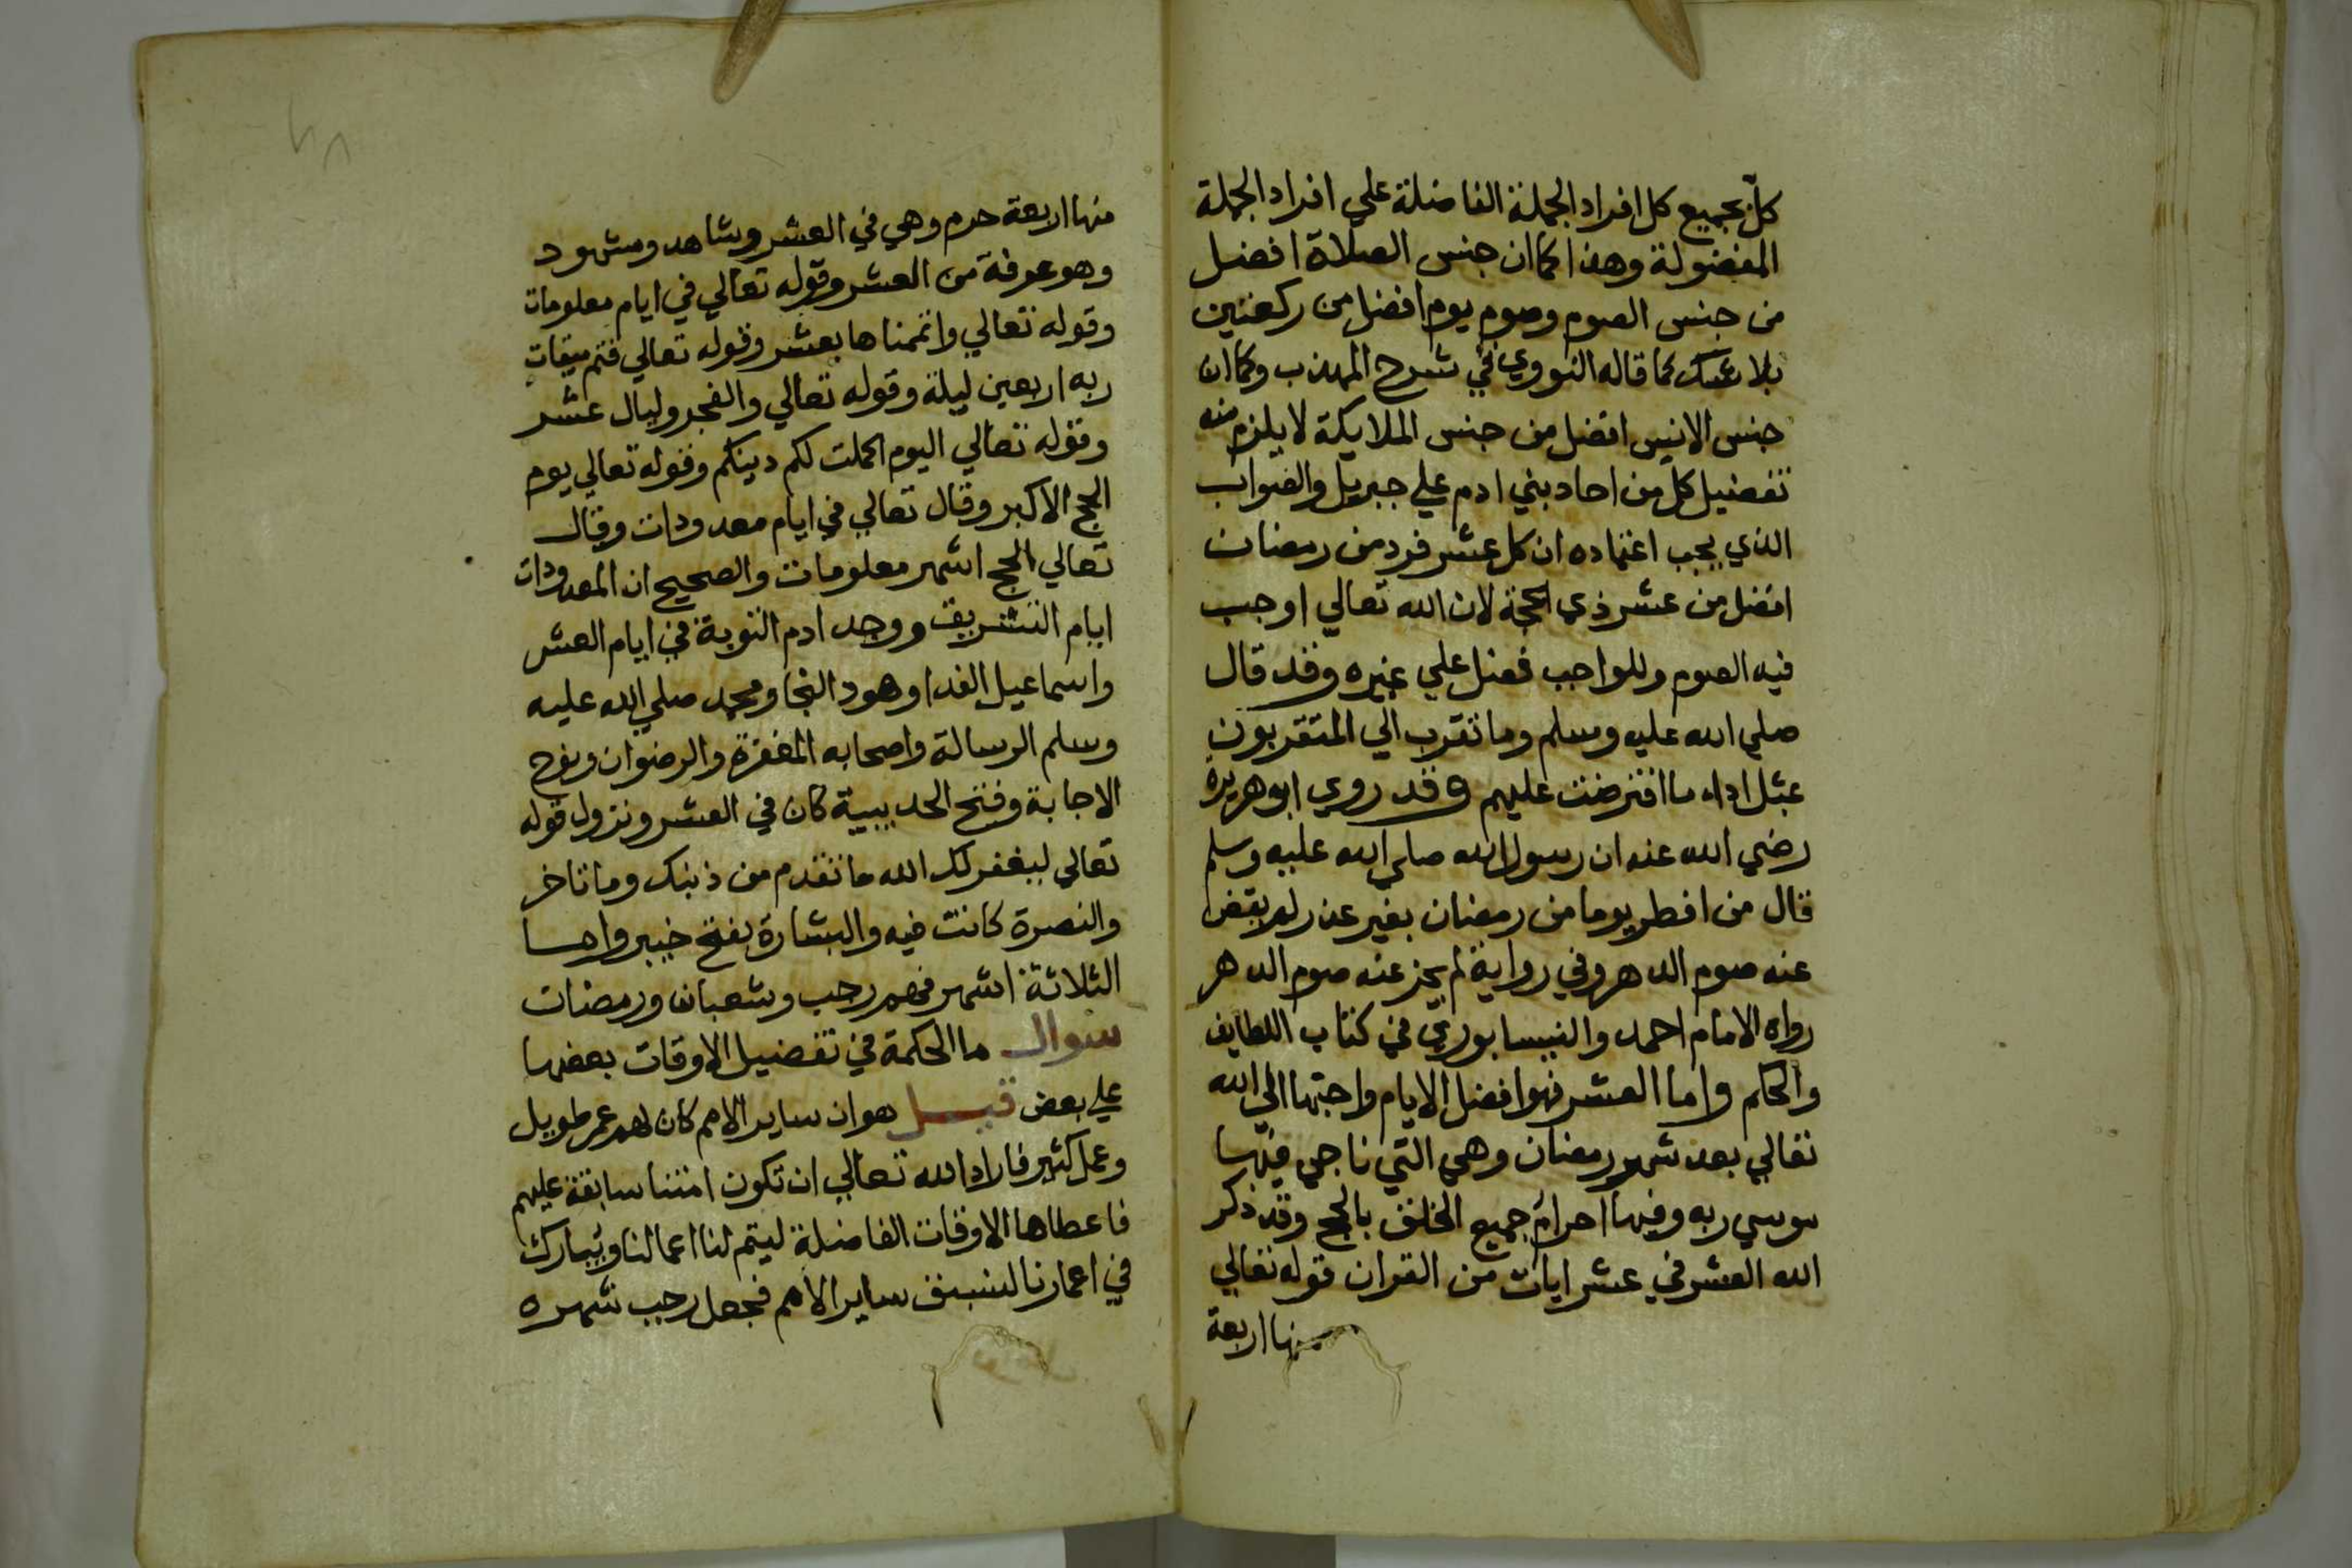 كل بجميع كل افراد الجملة الفاضلة علي افراد الجملة
المفضولة وهذا كما ان جنس الصلاة افضل
من جنس الصوم وصوم يوم افضل من ركعتين
بلا شك كما قاله النووي في شرح المهذب وكما ان
جنس الانس افضل من جنس الملايكة لا يلزم منه
تفضيل كل من احاد بني ادم علي جبريل والصواب
الذي يجب اعتماده ان كل عشر فرد من رمضان
افضل من عشر ذي الحجة لان الله تعالي اوجب
فيه الصوم وللواجب فضل علي غيره وقد قال
صلي الله عليه وسلم وما تقرب الي المتقربون
بمثل اداء ما افترضت عليهم وقد روي ابو هريرة
رضي الله عنه ان رسول الله صلي الله عليه وسلم
قال من افطر يوما من رمضان بغير عذر لم يقض
عنه صوم الدهر وفي رواية لم يجز عنه صوم الدهر
رواه الامام احمد والنيسابوري في كتاب اللطايف
والحكم واما العشر فهو افضل الايام واحبها الي الله
تعالي بعد شهر رمضان وهي التي ناجي فيها
موسي ربه وفيها احرام جميع الخلق بالحج وقد ذكر
الله العشر في عشر ايات من القران قوله تعالي
منها اربعة
منها اربعة حرم وهي في العشر وشاهد ومشهود
وهو عرفة من العشر وقوله تعالي في ايام معلومات
وقوله تعالي واتممناها بعشر وقوله تعالي فتم ميقات
ربه اربعين ليلة وقوله تعالي والفجر وليال عشر
وقوله تعالي اليوم اكملت لكم دينكم وقوله تعالي يوم
الحج الاكبر وقال تعالي في ايام معدودات وقال
تعالي الحج اشهر معلومات والصحيح ان المعدودات
ايام التشريق ووجد ادم التوبة في ايام العشر
واسماعيل الفدا وهود النجا ومحمد صلي الله عليه
وسلم الرسالة واصحابه المغفرة والرضوان ونوح
الاجابة وفتح الحديبية كان في العشر ونزول قوله
تعالي ليغفر لك الله ما تقدم من ذنبك وما تاخر
والنصرة كانت فيه والبشارة بفتح خيبر واما
الثلاثة اشهر فهم رجب وشعبان ورمضان
سوال ما الحكمة في تفضيل الاوقات بعضها
علي بعض قيل هو ان ساير الامم كان لهم عمر طويل
وعمل كثير فاراد الله تعالي ان تكون امتنا سابقة عليهم
فاعطاها الاوقات الفاضلة ليتم لنا اعمالنا ويبارك
في اعمارنا لنسبق ساير الامم فجعل رجب شهره